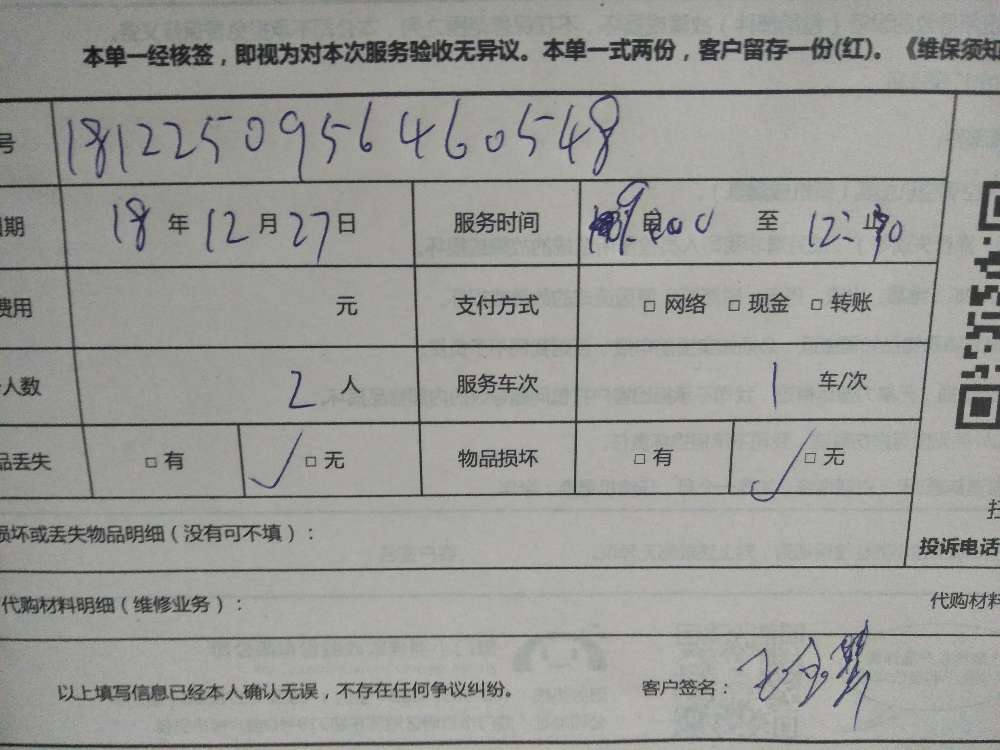 本单一经核签，即视为对本次服务验收无异议。本单一式两份，客户留存一份(红)。《维保须知
号 1812250956460548
期 18 年 12 月 27 日 服务时间 9:00 至 12:
费用 元 支付方式 □ 网络 □ 现金 □ 转账
人数 2 人 服务车次 1 车/次
品丢失 □ 有 ✓ □ 无 物品损坏 □ 有 ✓ □ 无
损坏或丢失物品明细（没有可不填）：
投诉电话
代购材料明细（维修业务）： 代购材料
以上填写信息已经本人确认无误，不存在任何争议纠纷。 客户签名：